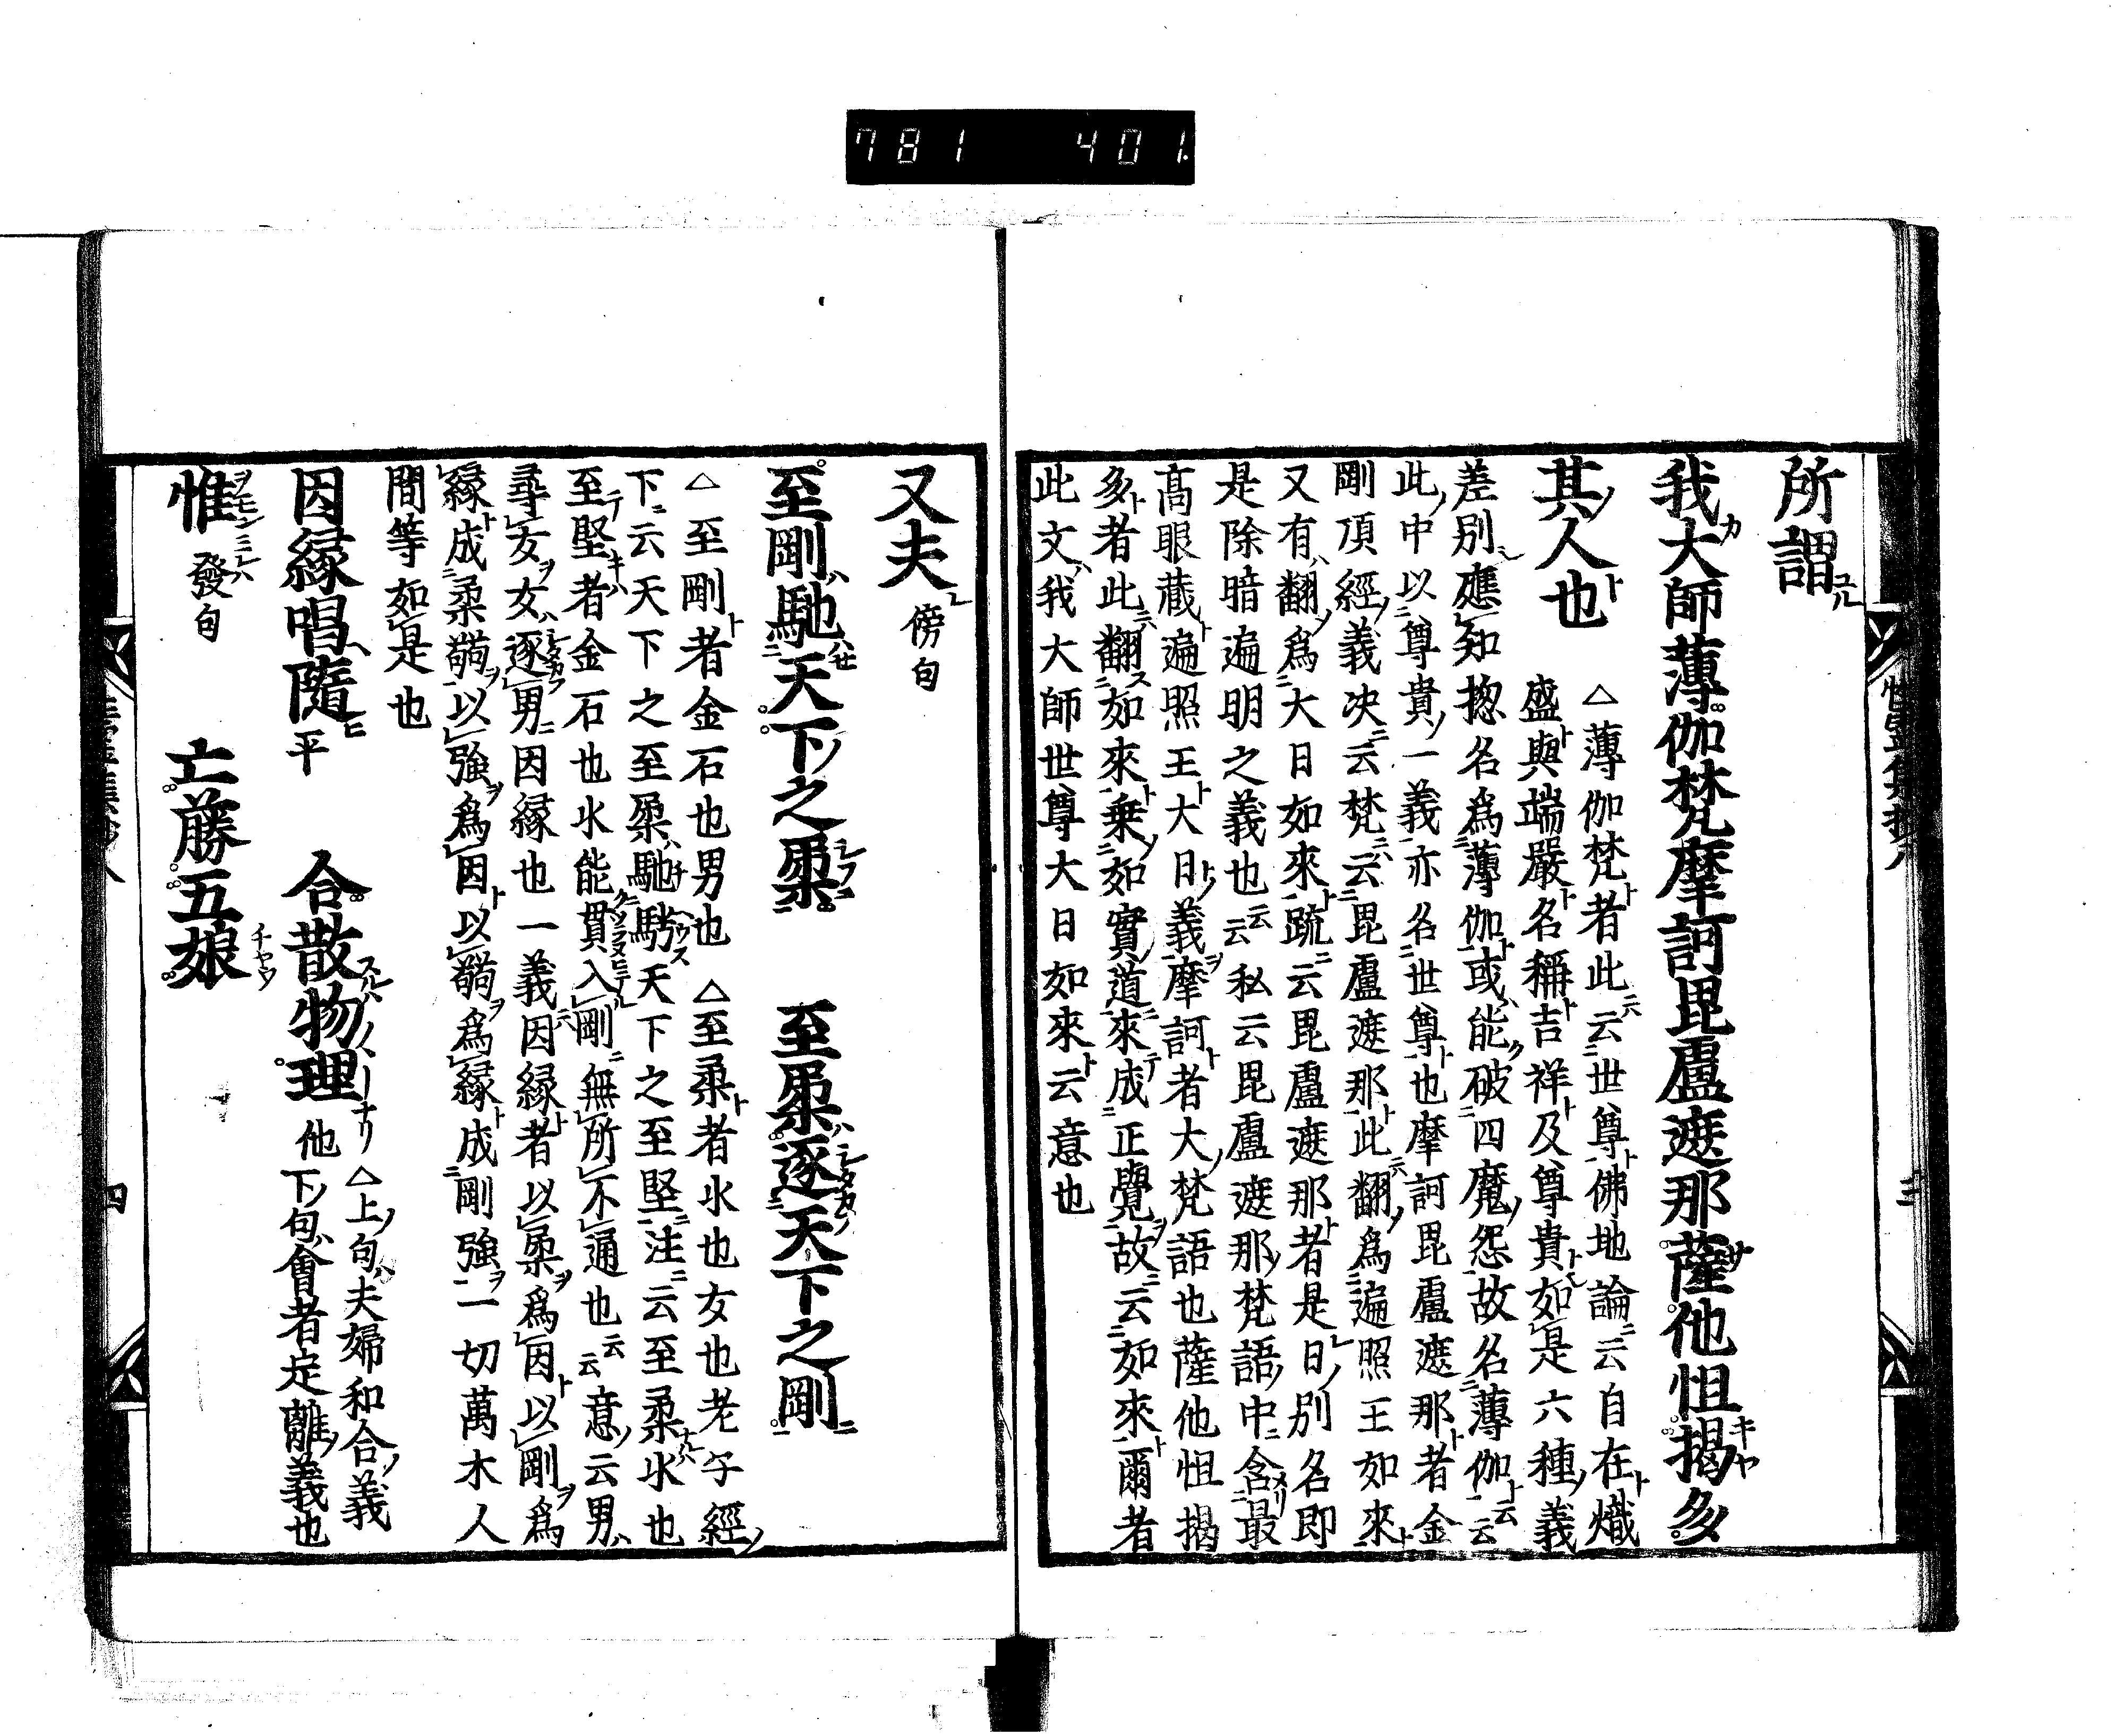 781 401
所謂
我大師薄伽梵摩訶毘盧遮那薩他怛揭多
其人也
△薄伽梵者此云世尊佛地論云自在熾
盛與端嚴名稱吉祥及尊貴如是六種義
差別應知揔名爲薄伽或能破四魔怨故名薄伽云云
此中以尊貴一義亦名世尊也摩訶毘盧遮那者金
剛頂經義决云梵云毘盧遮那此翻爲遍照王如來
又有翻爲大日如來䟽云毘盧遮那者是日別名即
是除暗遍明之義也云云私云毘盧遮那梵語中含最
髙眼藏遍照王大日義摩訶者大梵語也薩他怛揭
多者此翻如來乗如實道來成正覺故云如來爾者
此文我大師世尊大日如來云意也
又夫 傍句
至剛馳天下之柔 至柔逐天下之剛
△至剛者金石也男也 △至柔者水也女也老子經
下云天下之至柔馳騁天下之至堅注云至柔水也
至堅者金石也水能貫入剛無所不通也云云意云男
尋女女逐男因縁也一義因縁者以柔爲因以剛爲
縁成柔䎡以強爲因以䎡爲縁成剛強一切萬木人
間等如是也
因縁唱隨平 合散物理他
△上句夫婦和合義
下句會者定離義也
惟 發句 亡藤五娘